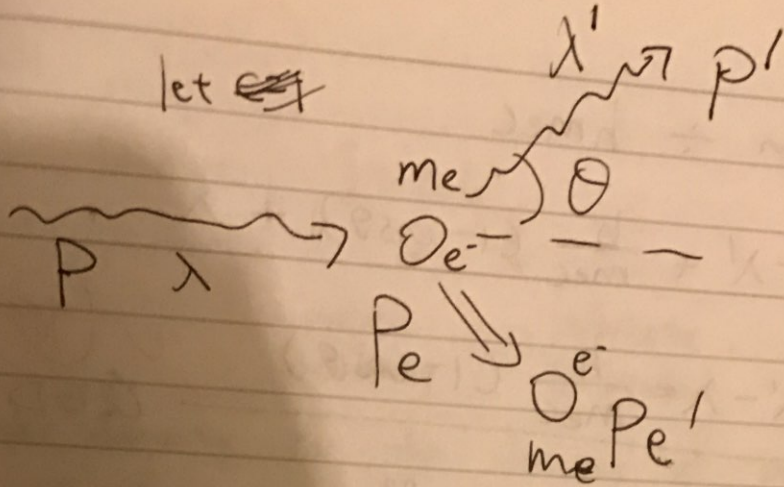 let
λ' p'
me θ
P λ
e-
Pe
e-
me Pe'